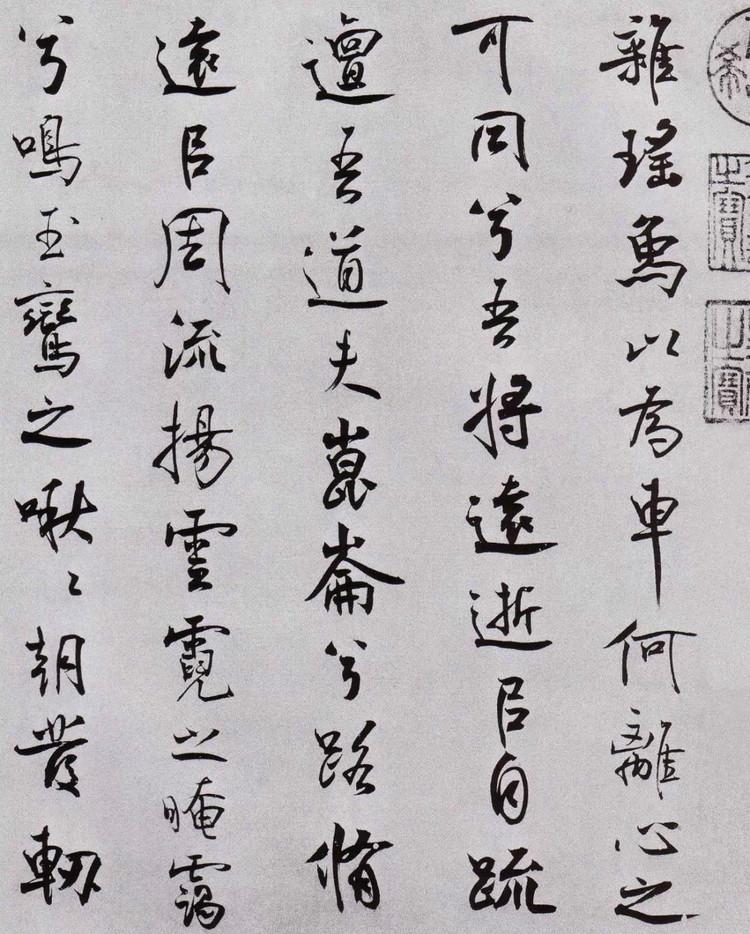 之寶
之寶
雜瑤象以為車何離心之
可同兮吾將遠逝㠯自疏
邅吾道夫崑崙兮路脩
遠㠯周流揚雲霓之晻靄
兮鳴玉鸞之啾〻朝發軔